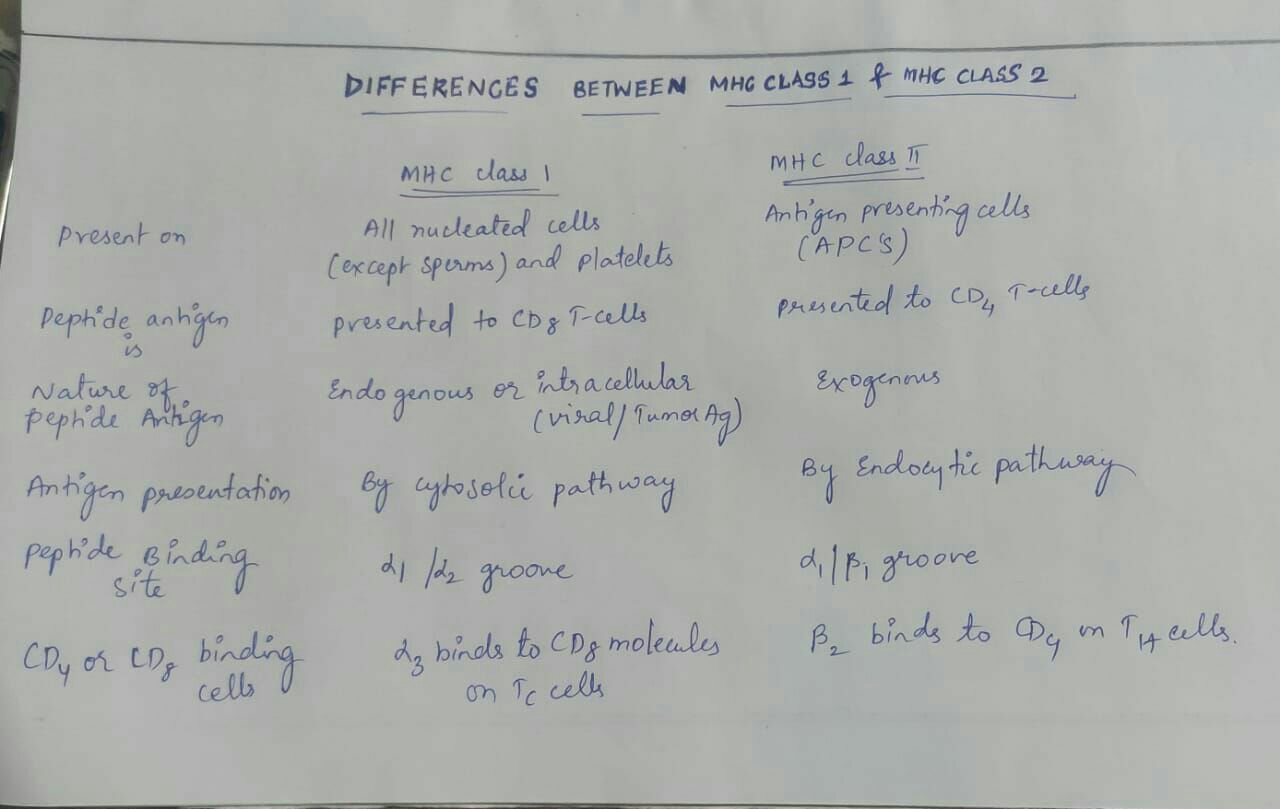 DIFFERENCES BETWEEN MHC CLASS 1 & MHC CLASS 2
MHC class I MHC class II
Present on All nucleated cells Antigen presenting cells
(except sperms) and platelets (APC's)
Peptide antigen is presented to CD8 T-cells presented to CD4 T-cells
Nature of Endogenous or intracellular Exogenous
peptide Antigen (viral/Tumor Ag)
Antigen presentation By cytosolic pathway By Endocytic pathway
peptide Binding α1/α2 groove α1/β1 groove
site
CD4 or CD8 binding α3 binds to CD8 molecules β2 binds to CD4 on TH cells.
cells on Tc cells